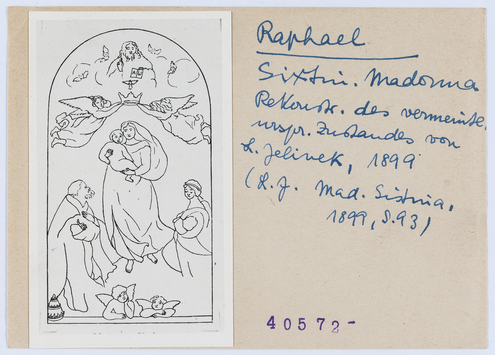 Raphael
Sixtin. Madonna
Rekonstr. des vermeintl.
urspr. Zustandes von
L. Jelinek, 1899
(L. J. Mad. Sistina,
1899, S. 93)
40572-